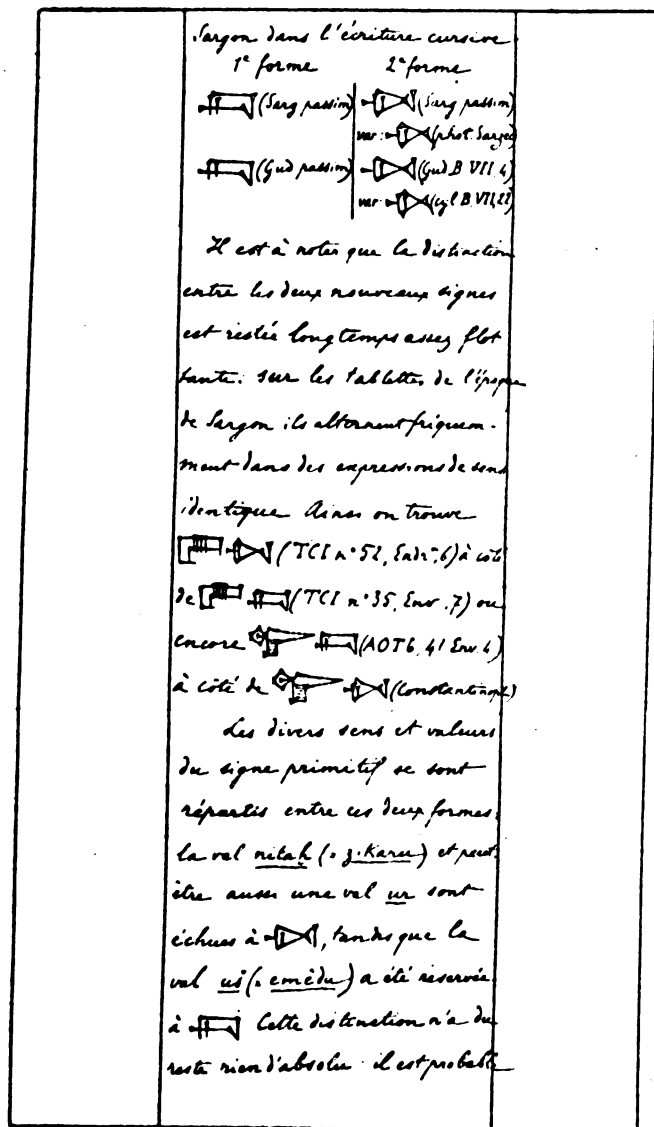 Sargon dans l'écriture cursive.
1e forme 2e forme
(Sarg passim) (Sarg passim)
var: (phot. Sarzec)
(Gud passim) (Gud B VII, 4)
var: (cyl B VII, 22)
Il est à noter que la distinction
entre les deux nouveaux signes
est restée longtemps assez flot
tante: sur les tablettes de l'époque
de Sargon ils alternent fréquem-
ment dans des expressions de sens
identique Ainsi on trouve
(TCI n° 52, 6) à côté
de (TCI n° 35, Env. 7) ou
encore (AOTb, 41 Env. 4)
à côté de (Constantinopl.)
Les divers sens et valeurs
du signe primitif se sont
répartis entre ces deux formes.
la val nitaḫ (= zikaru) et peut
être aussi une val ur sont
échues à , tandis que la
val uš (= emêdu) a été réservée
à Cette distinction n'a du
reste rien d'absolu il est probable